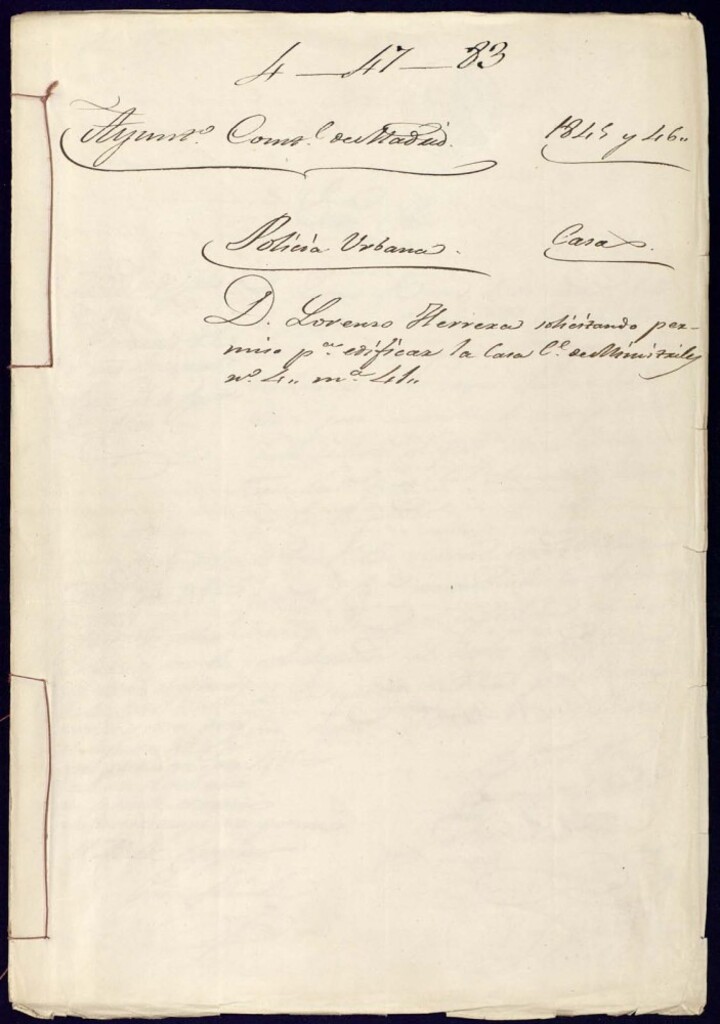 4 — 47 — 83
Ayunto. Consl. de Madrid. 1845 y 46.,
Policía Urbana. Casas.
D. Lorenzo Herrera solicitando per-
miso pa. edificar la Casa Ce. de Ministriles
no. 4,, ma. 41,,